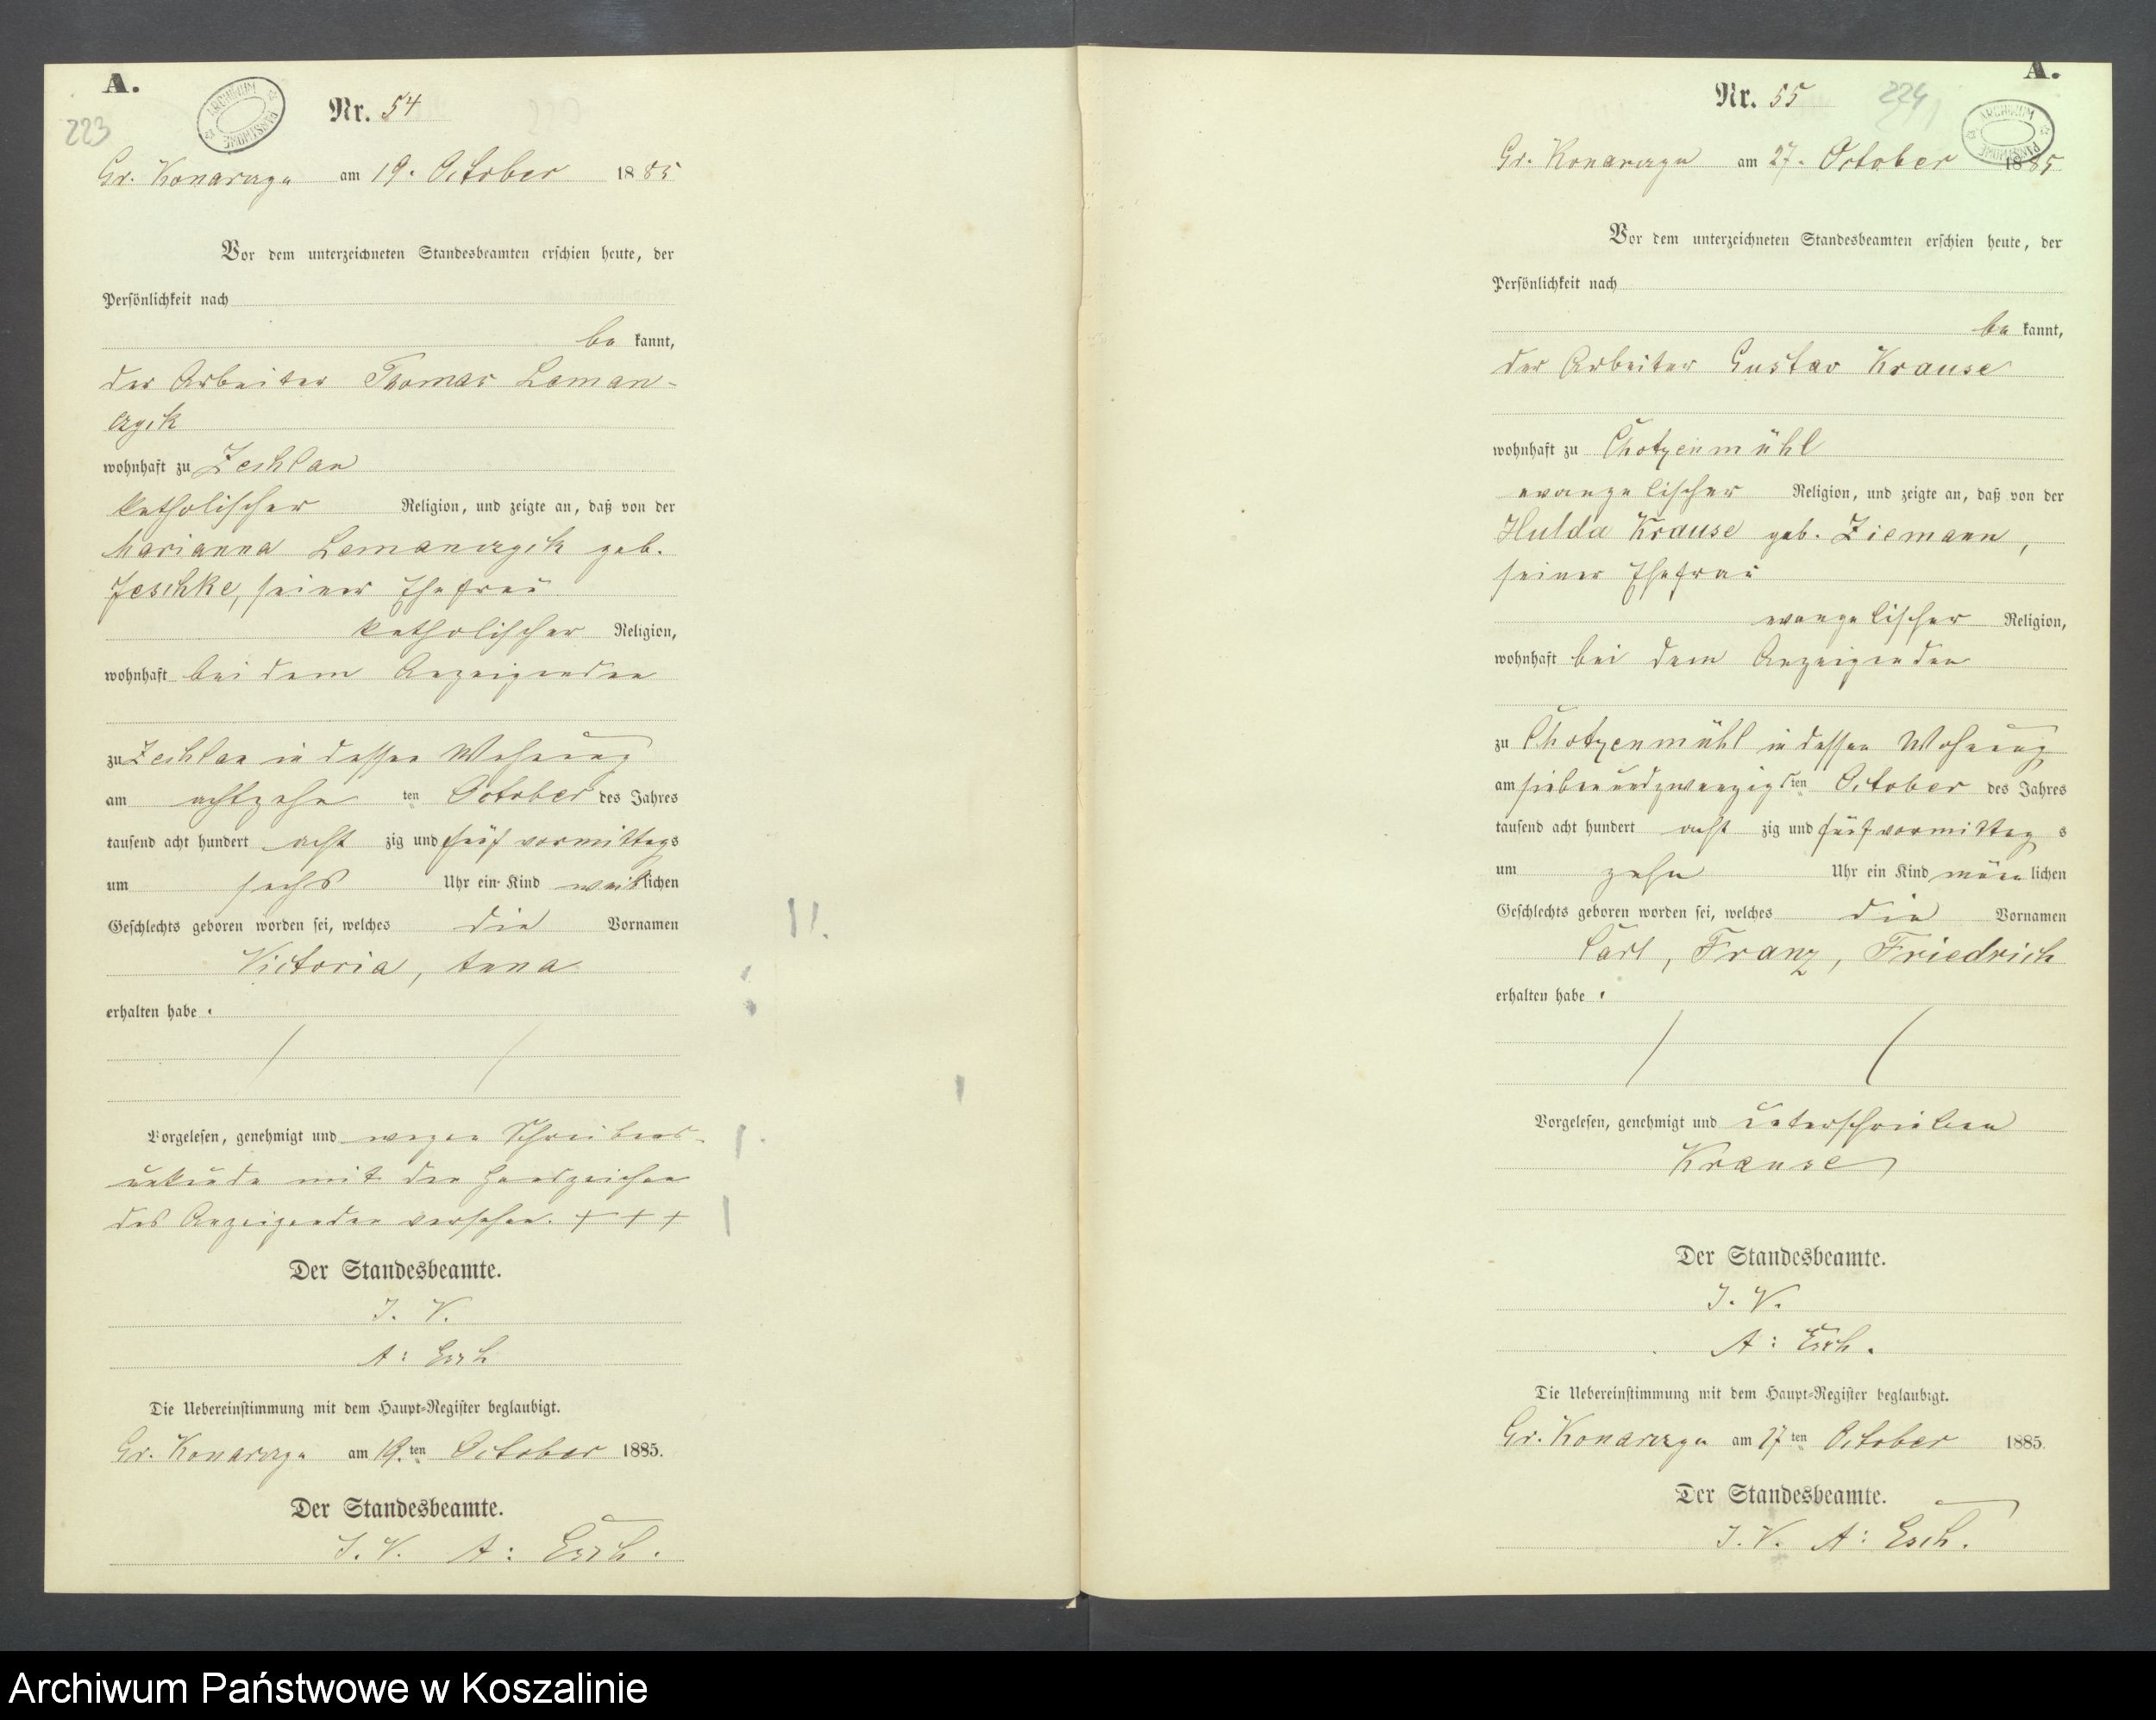 A.
223
Nr. 54
Gr. Konarczyn am 19. October 1885
Vor dem unterzeichneten Standesbeamten erschien heute, der
Persönlichkeit nach
be kannt,
der Arbeiter Thomas Leman-
czyk
wohnhaft zu Zechlau
katholischer Religion, und zeigte an, daß von der
Marianna Lemanczyk geb.
Jeschke, seiner Ehefrau
katholischer Religion,
wohnhaft bei dem Anzeigenden
zu Zechlau in dessen Wohnung
am achtzehn ten October des Jahres
tausend acht hundert acht zig und fünf vormittags
um sechs Uhr ein Kind weiblichen
Geschlechts geboren worden sei, welches die Vornamen
Victoria, Anna
erhalten habe.
Vorgelesen, genehmigt und wegen Schreibens-
unkunde mit den Handzeichen
des Anzeigenden versehen. + + +
Der Standesbeamte.
J. V.
A: Esch
Die Uebereinstimmung mit dem Haupt-Register beglaubigt.
Gr. Konarczyn am 19. ten October 1885.
Der Standesbeamte.
J. V. A: Esch.
A.
Nr. 55
224
ARCHIWUM PAŃSTWOWE
Gr. Konarczyn am 27. October 1885
Vor dem unterzeichneten Standesbeamten erschien heute, der
Persönlichkeit nach
be kannt,
der Arbeiter Gustav Krause
wohnhaft zu Chotzenmühl
evangelischer Religion, und zeigte an, daß von der
Hulda Krause geb. Ziemann,
seiner Ehefrau
evangelischer Religion,
wohnhaft bei dem Anzeigenden
zu Chotzenmühl in dessen Wohnung
am siebenundzwanzigsten October des Jahres
tausend acht hundert acht zig und fünf vormittag s
um zehn Uhr ein Kind männlichen
Geschlechts geboren worden sei, welches die Vornamen
Carl, Franz, Friedrich
erhalten habe.
Vorgelesen, genehmigt und unterschrieben
Krause
Der Standesbeamte.
J. V.
A: Esch.
Die Uebereinstimmung mit dem Haupt-Register beglaubigt.
Gr. Konarczyn am 27 ten October 1885.
Der Standesbeamte.
J. V. A: Esch.
Archiwum Państwowe w Koszalinie